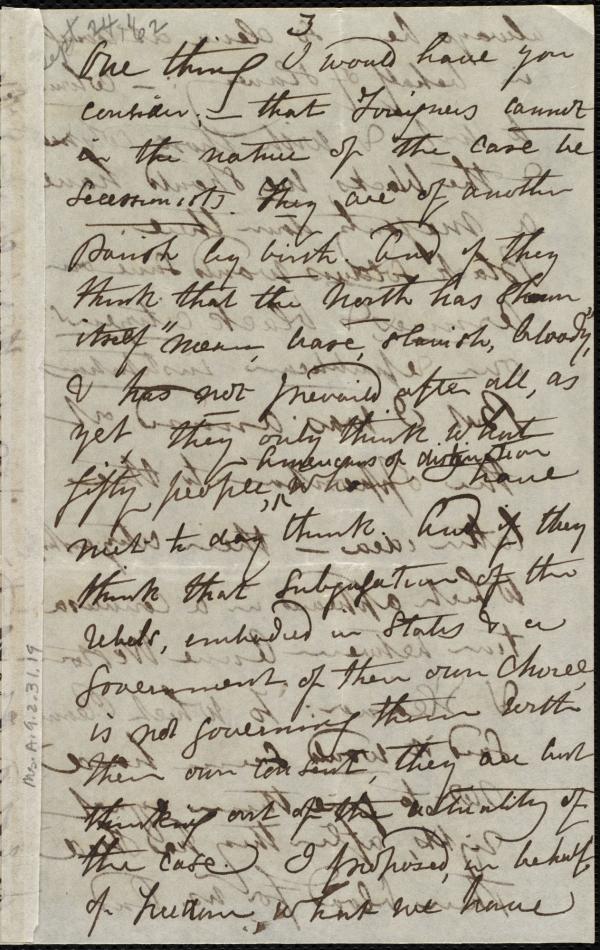 3
Sept 24, '62
One thing I would have you
consider; — that Foreigners cannot
in the nature of the case be
Secessionists. They are of another
Parish by birth. And if they
think that the North has shewn
itself "mean, base, slavish, bloody,"
& has not prevailed after all, as
yet they only think what
fifty people, Americans of distinction
who I have
met to day think. And if they
think that Subjugation of the
rebels, embodied in States & a
Government of their own choice,
is not governing them with
their own consent, they are but
thinking out of the actuality of
the case. I proposed, in behalf
of freedom, what we have
Ms. A.9.2.31.19